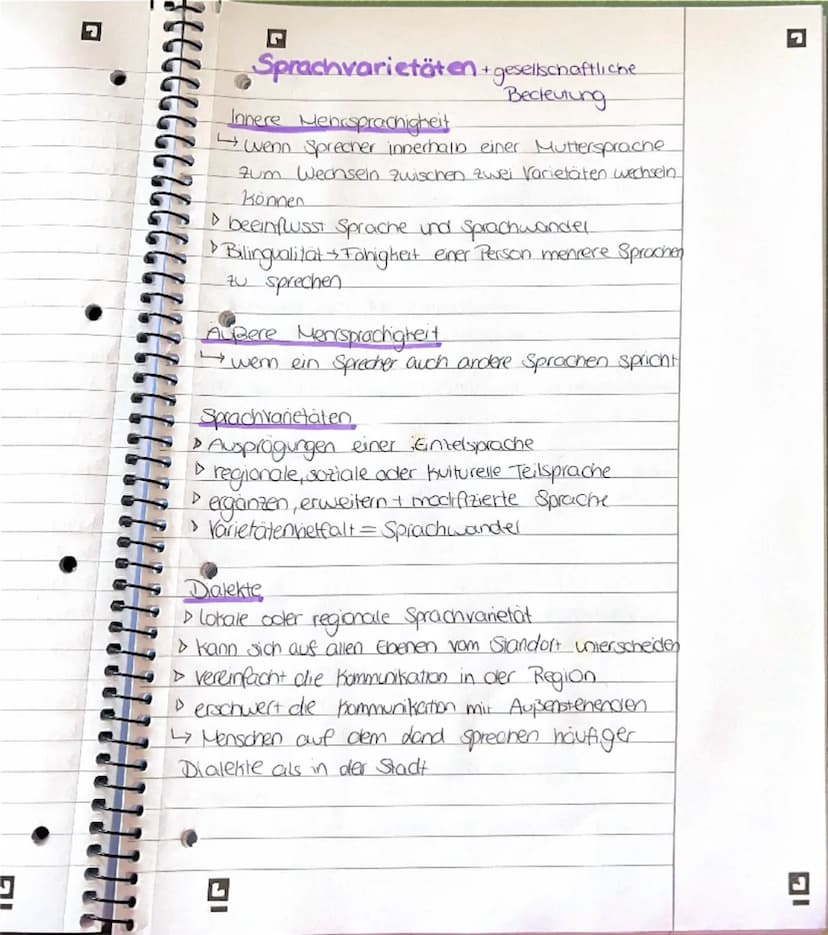 Sprachvarietäten + gesellschaftliche
Bedeutung
Innere Mehrsprachigkeit
↳ wenn Sprecher innerhalb einer Muttersprache
zum Wechseln zwischen zwei Varietäten wechseln
können
▹ beeinflusst Sprache und Sprachwandel
▹ Bilingualität → Fähigkeit einer Person mehrere Sprachen
zu sprechen
Äußere Mehrsprachigkeit
↳ wenn ein Sprecher auch andere Sprachen spricht
Sprachvarietäten
▹ Ausprägungen einer Einzelsprache
▹ regionale, soziale oder kulturelle Teilsprache
▹ ergänzen, erweitern + modifizierte Sprache
▹ Varietätenvielfalt = Sprachwandel
Dialekte
▹ lokale oder regionale Sprachvarietät
▹ kann sich auf allen Ebenen vom Standort unterscheiden
▹ vereinfacht die Kommunikation in der Region
▹ erschwert die Kommunikation mit Außenstehenden
↳ Menschen auf dem Land sprechen häufiger
Dialekte als in der Stadt